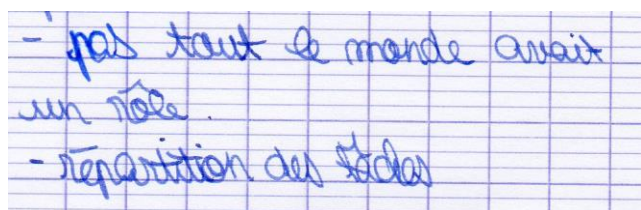 - pas tout le monde avait
un rôle.
- répartition des tâches